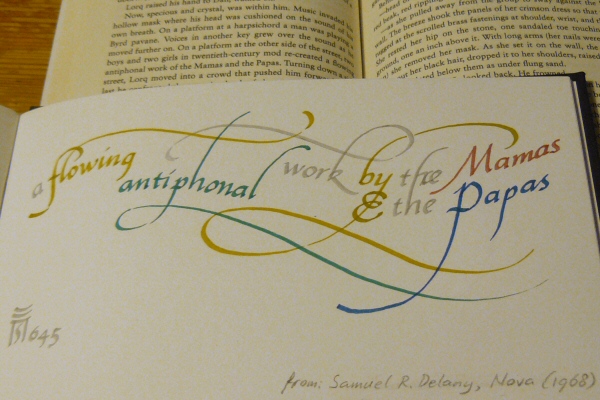 Lorq raised his hand to Dan,
Now, specious and crystal, was within him. Music invaded
hollow mask where his head was cushioned on the sound of
own breath. On a platform at a harpsichord a man was playing
Byrd pavane. Voices in another key grew over the sound as
moved further on. On a platform at the other side of the street, two
boys and two girls in twentieth-century mod re-created a flowing
antiphonal work of the Mamas and the Papas. Turning down
street, Lorq moved into a crowd that pushed him
she pulled away from the group to sway against the
wall. The breeze shook the panels of her crimson dress so that
from the scrolled brass fastenings at shoulder, wrist, and
She rested her hip on the stone, one sandaled toe touching
ground, one an inch above it. With long arms (her nails were
she removed her mask. As she set it on the wall, the
out her black hair, dropped it to her shoulders, raised
below them as under flung sand.
looked back. He frowned
a flowing antiphonal work by the Mamas
& the Papas
645
from: Samuel R. Delany, Nova (1968)